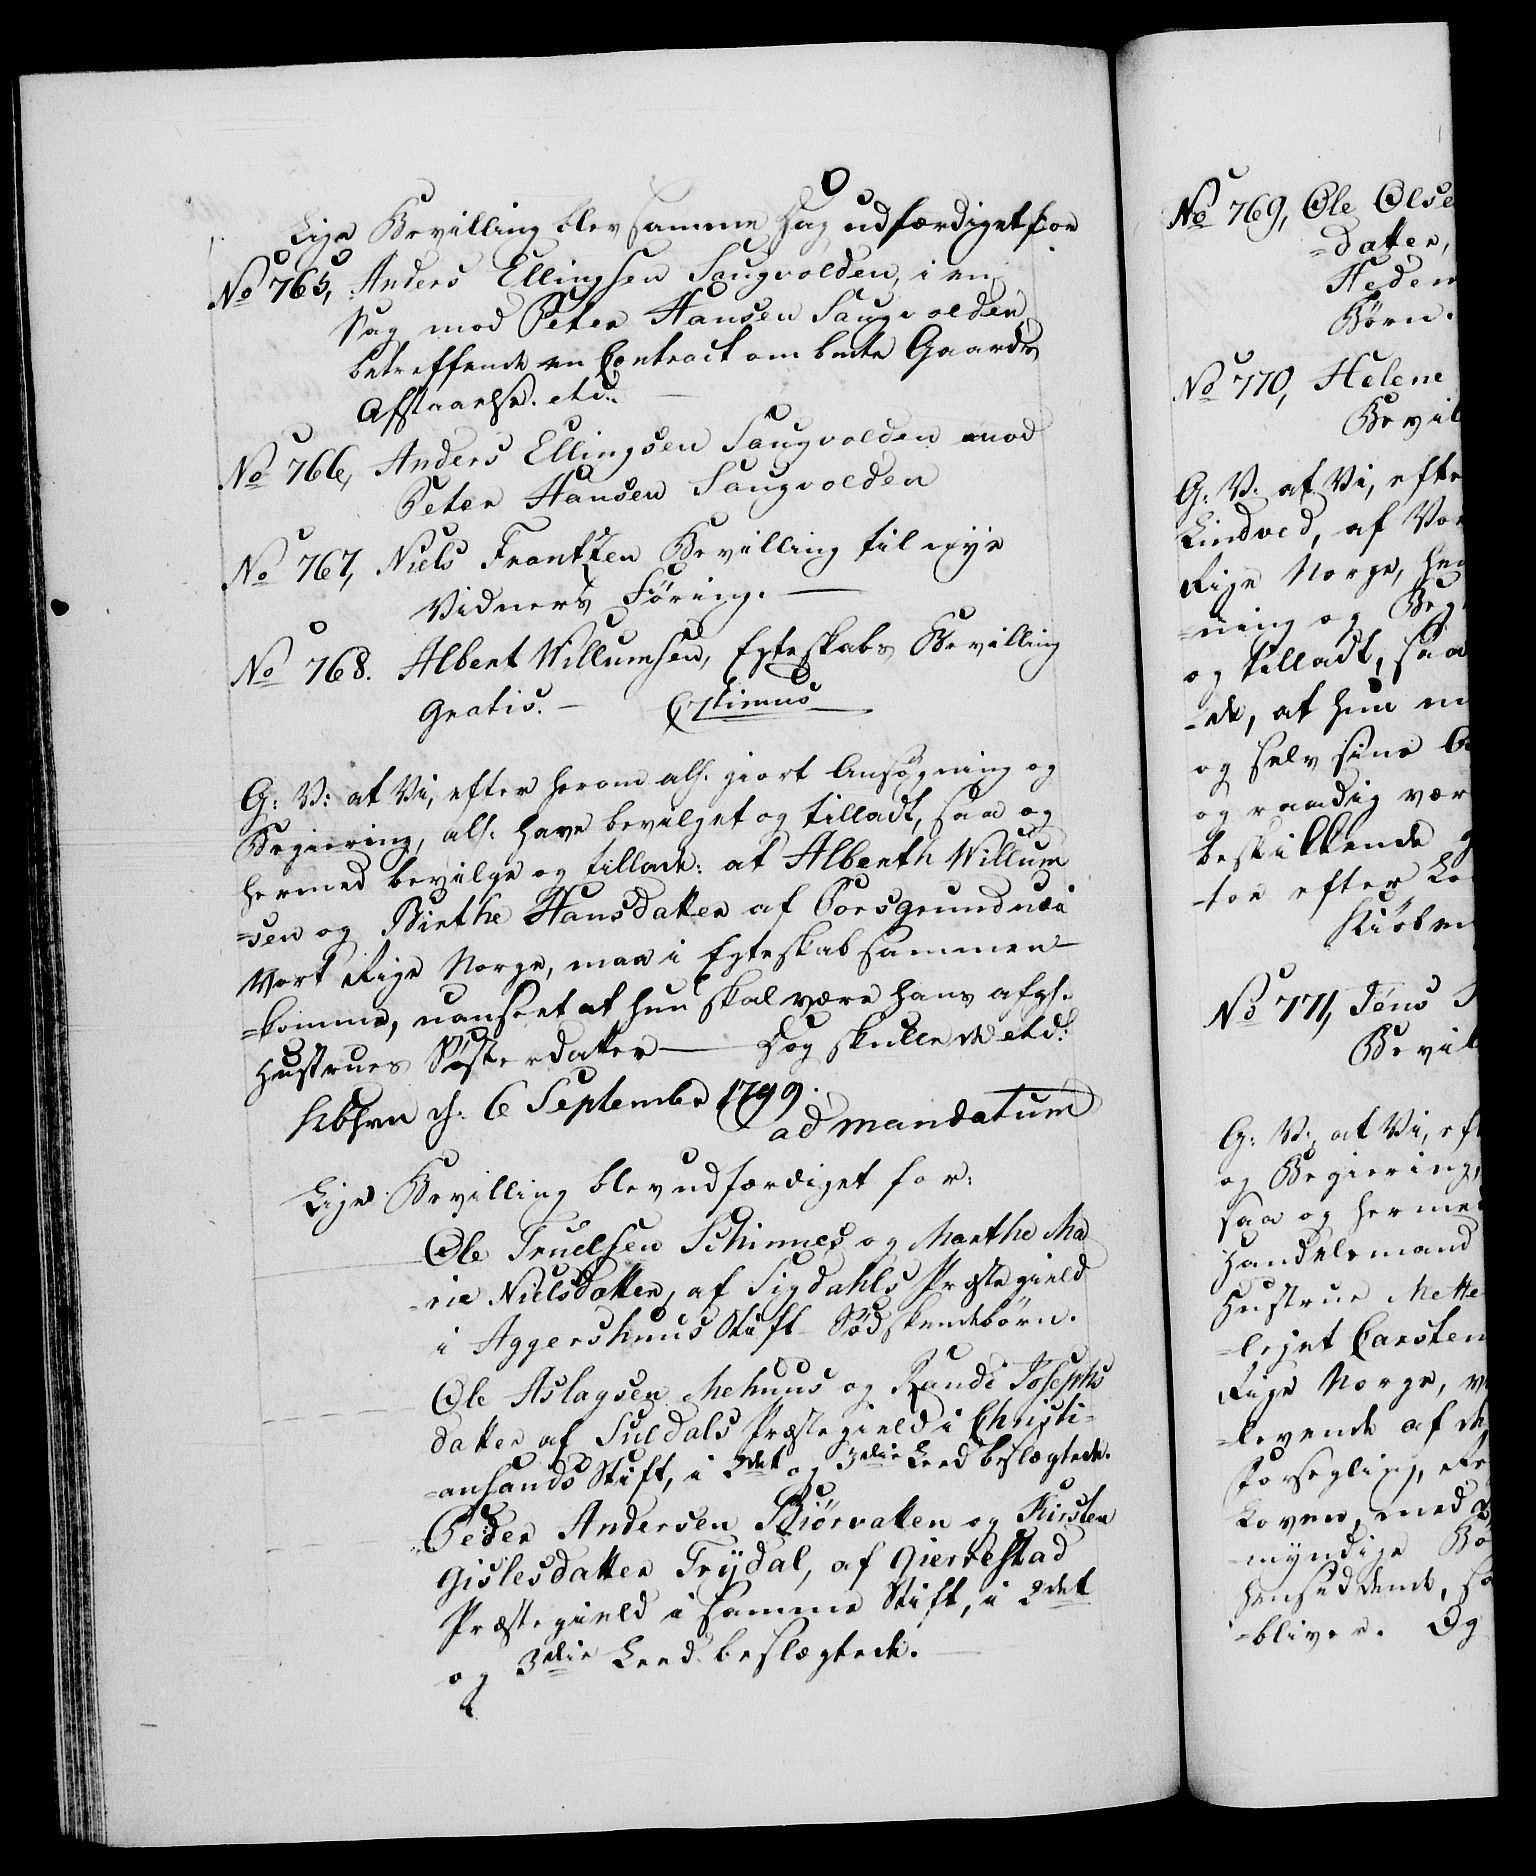 Lige Bevilling blev samme Dag udfærdiget for
No 765, Anders Ellingsen Saugvolden, i en
Sag mod Peter Hansen Saugvolden,
betreffende en Contract om bemte Gaards
Afstaaelse. etc:
No 766, Anders Ellingsen Saugvolden mod
Peter Hansen Saugvolden
No 767, Niels Frantzen Bevilling til nye
Vidners Føring. —
No 768. Albert Willumsen, Egteskabs Bevilling
Gratis. —
G: V: at Vi, efter herom all. giort Ansøgning og
Begiering, all: have bevilget og tilladt, saa og
hermed bevilge og tillade: at Alberth Willum
=sen og Birthe Hansdatter af Porsgrund udi
Vort Rige Norge, maa i Egteskab sammen-
=komme, uanseet at hun skal være hans afg:
Hustrues Søsterdatter — Dog skulle de etc:
Kbhvn d: 6 September 1799.
ad mandatum
Lige Bevilling blev udfærdiget for:
Ole Truelsen Schinnes og Marthe Ma
=rie Nielsdatter, af Sigdahls Præstegield
i Aggershuus Stift Sødskendebørn.
Ole Aslagsen Mehuus og Randi Josephs
datter af Suldals Præstegield i Christi=
=ansands Stift, i 2det og 3die Leed beslægtede.
Peder Andersen Biørvatten og Kirsten
Gislesdatter Trydal, af Gierrestad
Præstegield i samme Stift, i 2det
og 3die Leed beslægtede. —
No 769, Ole Olse
=datter,
Hedem
Børn.
No 770, Helene
Bevil
G: V: at Vi, efte
Lindved, af Vor
Rige Norge, hen
=ning og Beg
og tilladt, saa
=de, at hun m
og selv sine
og raadig vær
beskikkende
=tor efter Lo
Kiøben
No 771, Jens
Bevil
G: V: at Vi, eft
og Begiering,
saa og hermed
Handelsmand
Hustrue Mette
=leget Carsten
Rige Norge, v
=levende af de
Forsegling,
Loven, med
=myndige Bø
hensiddende, sa
=bliver. Og